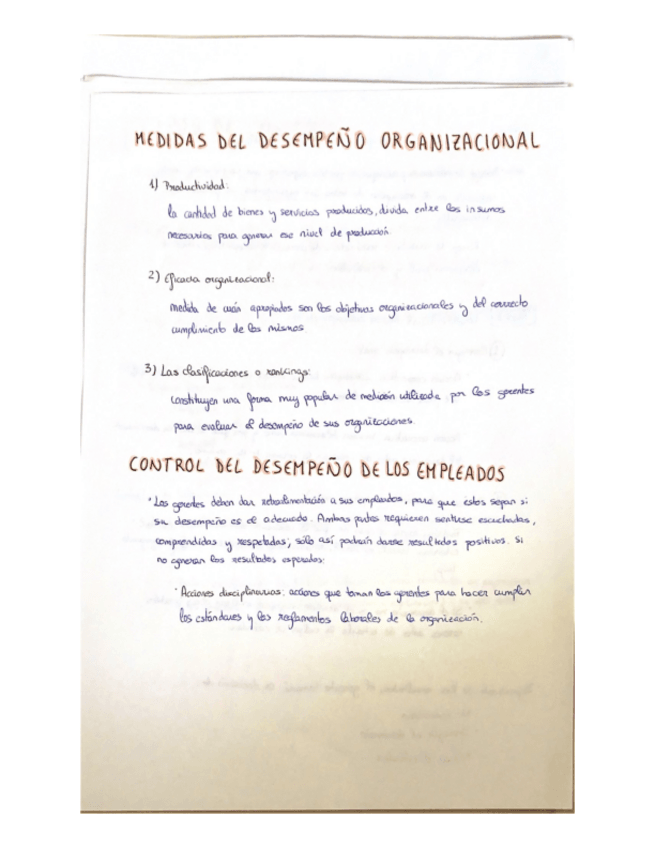 MEDIDAS DEL DESEMPEÑO ORGANIZACIONAL
1) Productividad:
la cantidad de bienes y servicios producidos, divida entre los insumos
necesarios para generar ese nivel de producción
2) Eficacia organizacional:
medida de cuán apropiados son los objetivos organizacionales y del correcto
cumplimiento de los mismos
3) Las clasificaciones o rankings:
constituyen una forma muy popular de medición utilizada por los gerentes
para evaluar el desempeño de sus organizaciones.
CONTROL DEL DESEMPEÑO DE LOS EMPLEADOS
· Los gerentes deben dar retroalimentación a sus empleados, para que estos sepan si
su desempeño es el adecuado. Ambas partes requieren sentirse escuchadas,
comprendidas y respetadas; sólo así podrán darse resultados positivos. Si
no generan los resultados esperados:
· Acciones disciplinarias: acciones que toman los gerentes para hacer cumplir
los estándares y los reglamentos laborales de la organización.